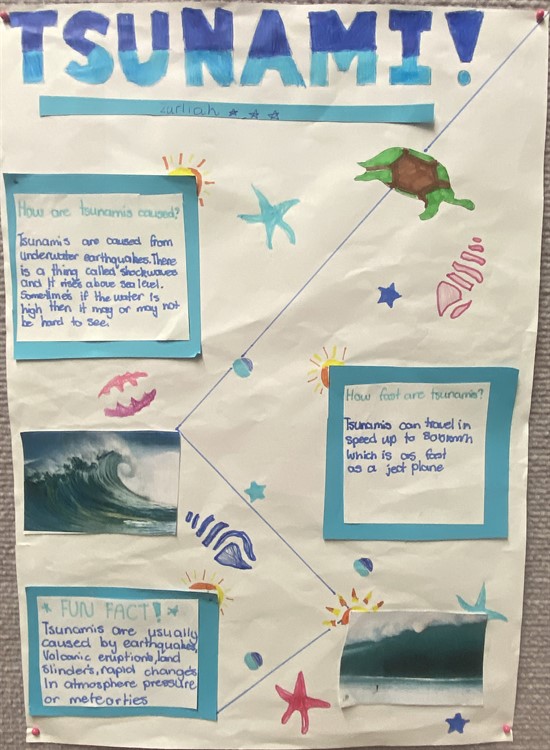 TSUNAMI!
zarliah
How are tsunamis caused?
Tsunamis are caused from
underwater earthquakes. There
is a thing called "shockwaves
and it rises above sea level.
Sometimes if the water is
high then it may or may not
be hard to see.
How fast are tsunamis?
Tsunamis can travel in
speed up to 800kmh
which is as fast
as a jeat plane
FUN FACT!
Tsunamis are usually
caused by earthquakes,
Volcanic eruptions, land
Slinders, rapid changes
In atmosphere pressure
or meteorties